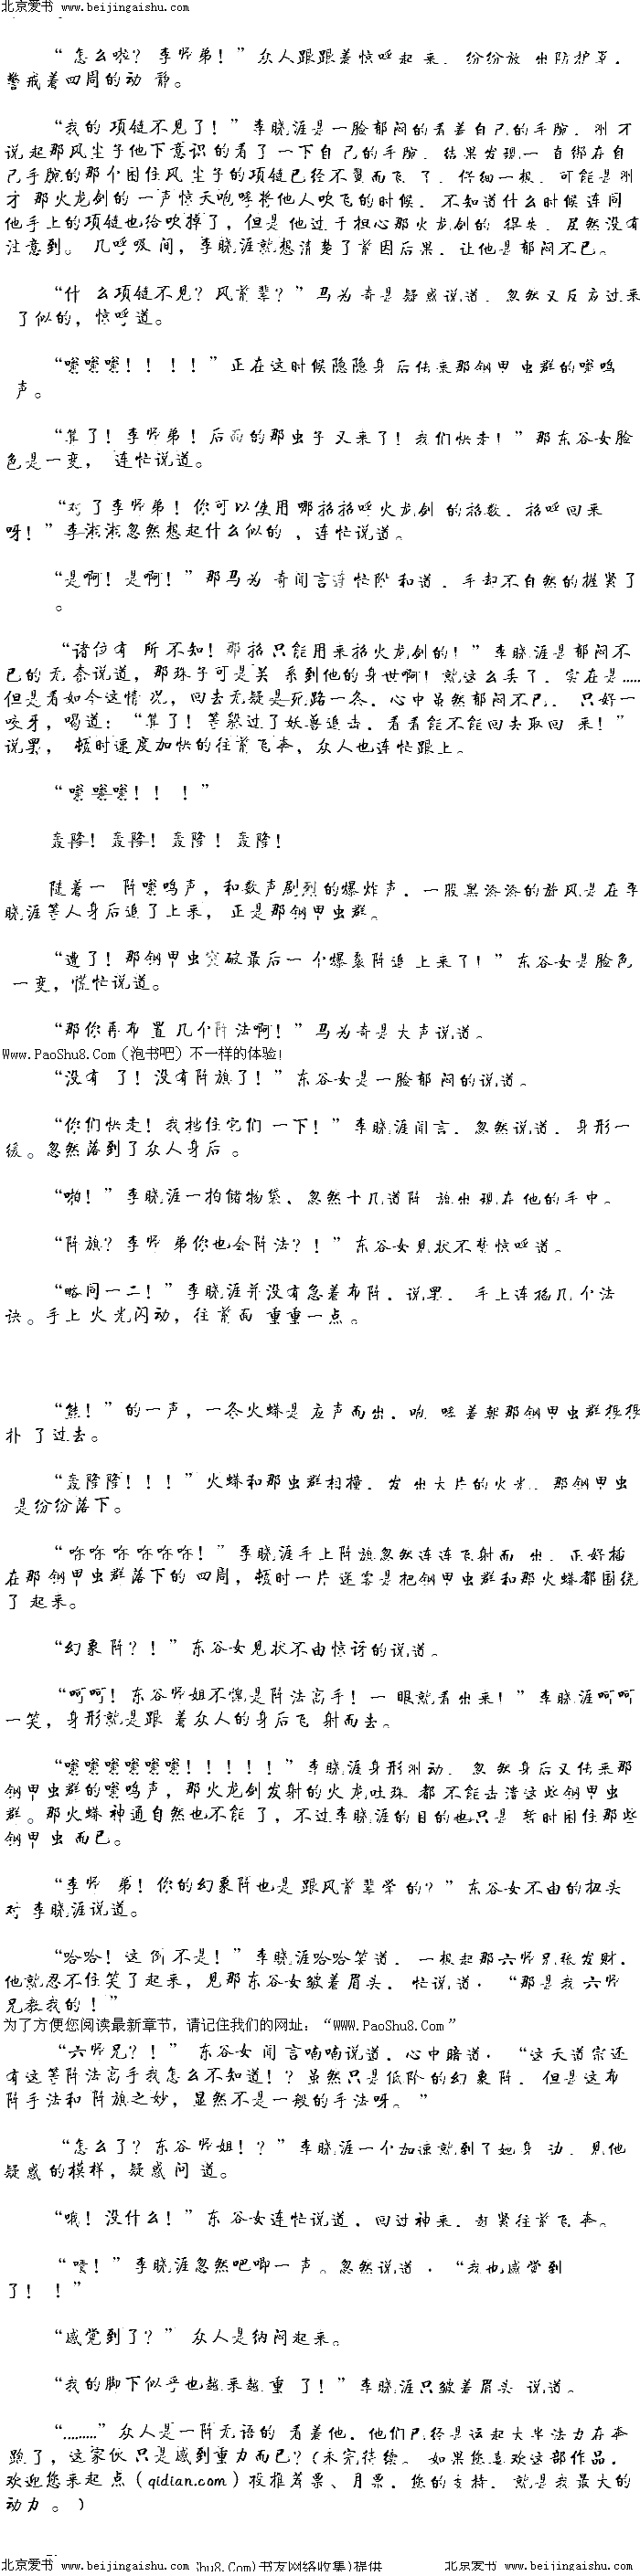 北京爱书 www.beijingaishu.com
“ 怎么啦？李师弟！”众人跟跟着惊呼起 来，纷纷放 出防护罩，
警戒着四周的动 静。
“我的 项链不见了！”李晓涯是一脸郁闷的看着自己的手腕，刚 才
说 起那风尘子他下意识的看了 一下自 己的手腕，结果发现一 直绑在自
己手腕的那个困住风 尘子的项链已经不翼而飞 了，仔细一想，可能是刚
才 那火龙剑的 一声惊天咆哮将他人吹飞的时候，不知道什么时候 连同
他手上的项链也给吹掉了，但是 他过于担心那火龙剑的 得失，居然没有
注意到。 几呼吸 间，李晓涯就想清楚了前因后果，让他是郁闷不已。
“什 么项链不见？风前辈？”马为 奇是疑惑说道，忽然又反应过来
了似的，惊呼道。
“嗡嗡嗡！！！！”正在这时候隐隐身 后传来那钢甲 虫群的嗡鸣
声。
“算了！李师弟！后面的那虫子 又来了！我们快走！”那东谷女脸
色是一变， 连忙说道。
“对 了李师弟！你可以使用 哪招招呼火龙剑 的招数，招呼回来
呀！”李淑淑忽然想起什么似的 ，连忙说道。
“是啊！是啊！”那马为 奇闻言连忙附 和道，手却不自然的握紧了
。
“诸位有 所 不知！那招只能用来招火龙剑的！”李晓涯是郁闷不
已的无奈说道，那珠子可是关 系到他的身世啊！就这么丢了，实在是.....
但是看如今这情 况，回去无疑是死路一条，心中虽然郁闷不已， 只好一
咬牙，喝道：“算了！等躲过了妖兽追击，看看能不能回去取回 来！”
说罢， 顿时速度加快的往前飞奔，众人也连忙跟上。
“嗡 嗡嗡！！ ！”
轰隆！轰隆！轰隆！轰隆！
随着一 阵嗡鸣声，和数声剧烈的爆炸声，一股黑漆漆的旋风是在李
晓涯等人身后追了上来， 正是那钢甲虫群。
“遭了！那钢甲虫突破最后一 个爆裂阵追 上来了！”东谷女是脸色
一变，慌忙说道。
“那你再布 置 几个阵 法啊！”马为奇是大声说道。
Www.PaoShu8.Com（泡书吧）不一样的体验!
“没有 了！没有阵旗了！”东谷女是一脸郁 闷的说道。
“你们快走！我挡住它们 一下！”李晓涯闻言，忽然说道，身形一
缓。忽然落到了众人身后 。
“啪！”李晓涯一拍储物袋，忽然十几道阵 旗出现在他的手中。
“阵旗？李师 弟你也会阵法？！”东谷女见状不禁惊呼道。
“略同一二！”李晓涯并没有急着布阵，说罢， 手上连掐几个法
诀。手上 火光闪动，往前面 重重一点。
“熊！”的一声，一条火蟒是 应声而出，响 哮着朝那钢甲虫群狠狠
扑 了过去。
“轰隆隆！！！”火蟒和那虫群相撞，发 出大片的火光，那钢甲虫
是纷纷落下。
“咻咻 咻 咻咻咻！”李晓涯手上阵旗忽然连连飞射而 出，正好插
在那钢甲虫群落下的 四周，顿时一片 迷雾是把钢甲虫群和那火蟒都围绕
了 起来。
“幻象 阵？！”东谷女见状不由惊讶的说道。
“呵呵！东谷师姐不愧是阵法高手！一 眼就看出来！”李晓涯呵呵
一笑，身形就是跟 着众人的身后飞 射而去。
“嗡嗡嗡嗡嗡嗡！！！！！”李晓涯身形刚动，忽然身后又传来那
钢甲虫群的嗡鸣声，那火龙剑发射的火龙吐珠 都 不能击溃这些钢甲虫
群。那火蟒 神通自然也不能 了，不过李晓涯的目的也只是 暂时困住那些
钢甲 虫 而已。
“李师 弟！你的幻象阵也是 跟风前 辈学 的？”东谷女不由的扭头
对 李晓涯说道。
“哈哈！这 倒 不是！”李晓涯哈哈笑道，一想起那六师兄张发财，
他就忍不住笑了起来，见那东谷女皱着眉头，忙说道：“那是我 六师
兄教我的！”
为了方便您阅读最新章节，请记住我们的网址：“WWW.PaoShu8.Com ”
“六师兄？！” 东谷女 闻言喃喃说道，心中暗道：“这天道宗还
有这等阵法高手我怎么不知道！？虽然只是低阶的幻 象阵，但是这布
阵手法和 阵旗之妙，显然不是一般的手法呀。”
“怎么了？东谷师姐！？”李晓涯一个加速就到了她身 边，见他
疑惑 的模样，疑惑 问 道。
“哦！没什么！”东 谷女连忙说道，回过神来，赶紧往前飞 奔。
“啧！”李晓涯忽然吧唧一 声。忽然说道 ：“我也感觉到
了！ ！”
“感觉到了？” 众人是纳闷起来。
“我的脚下似乎也越来越 重 了！”李晓涯只皱着眉头 说道。
“.........”众人是一阵无语的 看着他，他们已经是运起大半法力在奔
跑了，这家伙 只是感到重力而已？（未完待续。 如果您喜欢这部作品，
欢迎您来起 点（qidian.com）投推荐票、月票，您的支持，就是我最大的
动力 。）
北京爱书 www.beijingaishu.com hu8.Com)书友网络收集)提供 北京爱书 www.beijingaishu.com